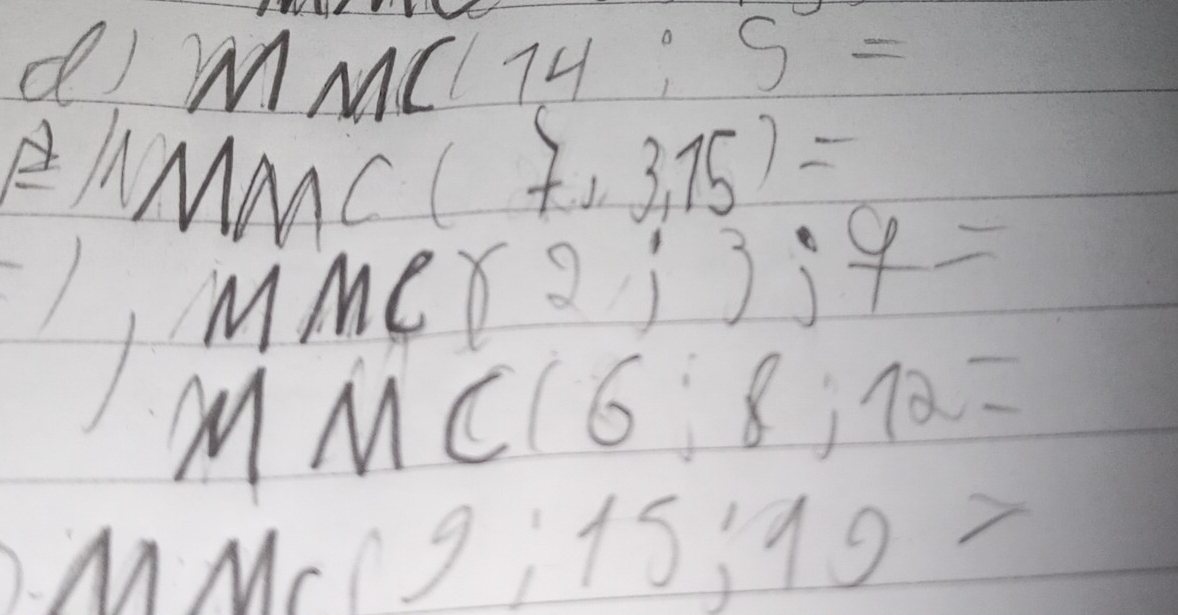 d) MMC( 14 ; 5 =
MMC ( 7, 3,15) =
MMC( 2 ; 3 ; 9 =
) MMC( 6 ; 8 ; 12 =
MMC( 9 ; 15 ; 10 =